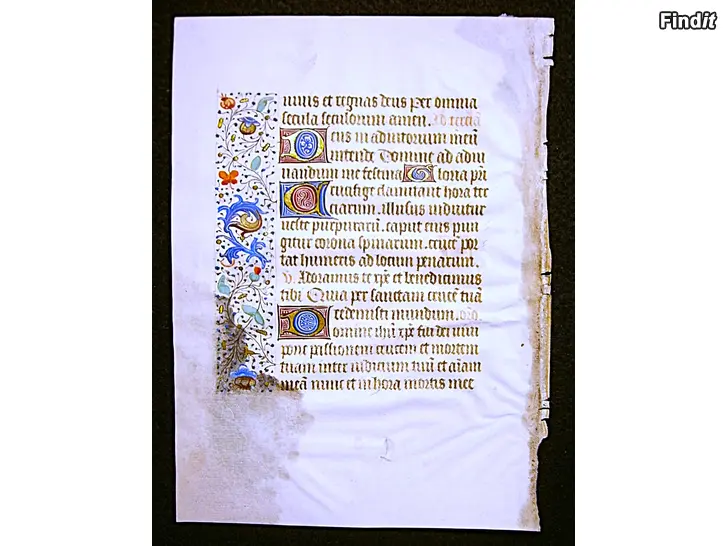 Findit
uiuis et regnas deus Per omnia
secula seculorum amen. Ad terciā
Deus in adiutorium meū
intende Domine ad adiu
uandum me festina Gloria pri
Crucifige clamitant hora ter
ciarum. illusus induitur
ueste purpurarū. caput eius pun
gitur corona spinarum. crucē por
tat humeris ad locum penarum.
V. Adoramus te xpe et benedicimus
tibi Quia per sanctam crucē tuā
Redemisti mundum. oro
Domine ihū xpe fili dei viui
pone passionem crucem et mortem
tuam inter iudicium tuū et aīam
meā nunc et in hora mortis mee